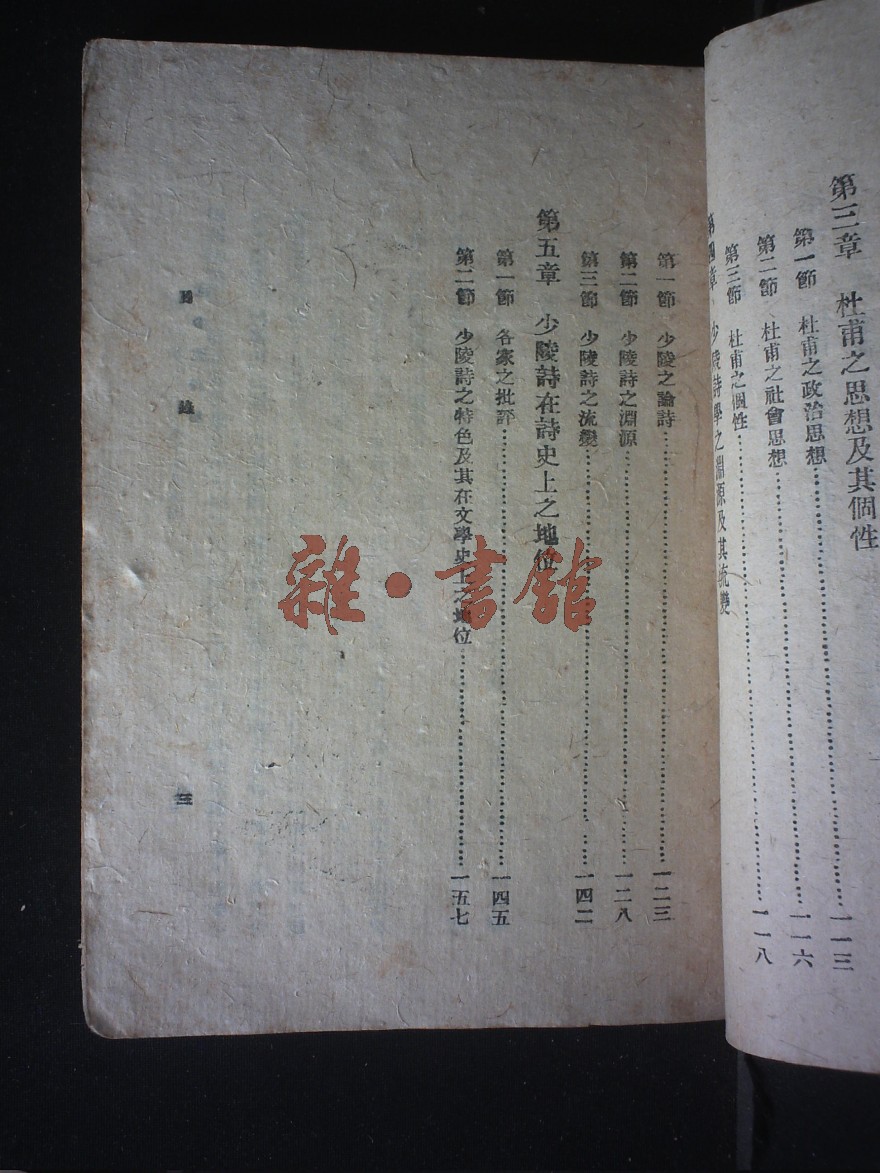 第三章　杜甫之思想及其個性
第一節　杜甫之政治思想……一一三
第二節　杜甫之社會思想……一一六
第三節　杜甫之個性……一一八
第四章　少陵詩學之淵源及其流變
第一節　少陵之論詩……一二三
第二節　少陵詩之淵源……一二八
第三節　少陵詩之流變……一四二
第五章　少陵詩在詩史上之地位
第一節　各家之批評……一四五
第二節　少陵詩之特色及其在文學史上之地位……一五七
目錄　三
雜·書館